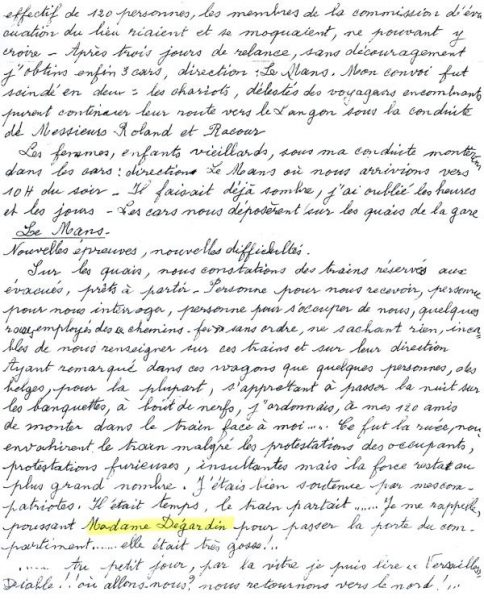 effectif de 120 personnes, les membres de la commission d'éva
cuation du lieu riaient et se moquaient, ne pouvant y
croire - Après trois jours de relance, sans découragement
j'obtins enfin 3 cars, direction : Le Mans. Mon convoi fut
scindé en deux : les chariots, délestés des voyageurs encombrants
purent continuer leur route vers le Langon sous la conduite
de Messieurs Roland et Racour
Les femmes, enfants vieillards, sous ma conduite montèrent
dans les cars : direction Le Mans où nous arrivions vers
10H du soir - Il faisait déjà sombre, j'ai oublié les heures
et les jours - Les cars nous déposèrent sur les quais de la gare
Le Mans.
Nouvelles épreuves, nouvelles difficultés.
Sur les quais, nous constations des trains réservés aux
évacués, prêts à partir - Personne pour nous recevoir, personne
pour nous interroger, personne pour s'occuper de nous, quelques
rares employés des chemins-fer sans ordre, ne sachant rien, inca
bles de nous renseigner sur ces trains et sur leur direction
Ayant remarqué dans ces wagons que quelques personnes, des
belges, pour la plupart, s'apprêtant à passer la nuit sur
les banquettes, à bout de nerfs, j'ordonnais, à mes 120 amis
de monter dans le train face à moi.... Ce fut la ruée, nous
envahirent le train malgré les protestations des occupants,
protestations furieuses, insultantes mais la force restat au
plus grand nombre. J'étais bien soutenue par mes com-
patriotes. Il était temps, le train partait ...... Je me rappelle,
poussant Madame Dégardin pour passer la porte du com-
partiment ...... elle était très grosse !..
...... Au petit jour, par la vitre je puis lire "Versailles
Diable !! où allons-nous? nous retournons vers le nord !..